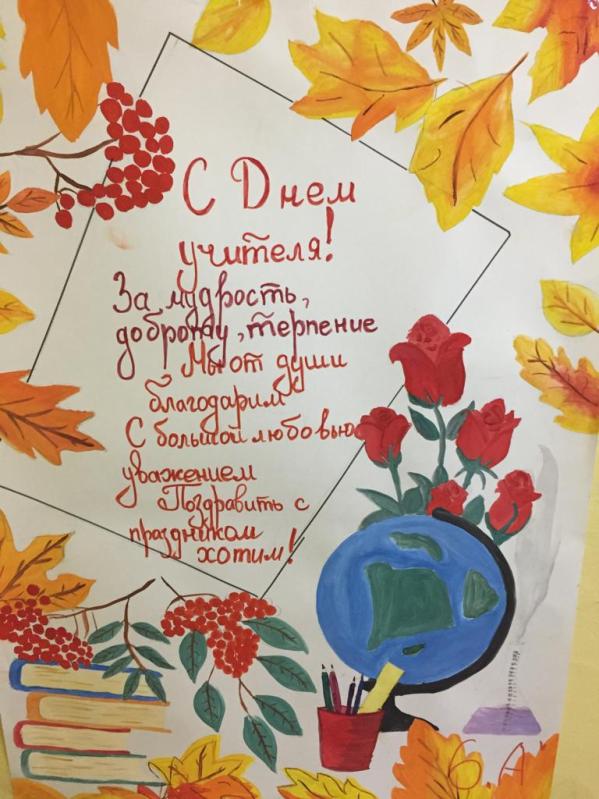 С Днем
учителя!
За мудрость,
доброту, терпение
Мы от души
благодарим
С большой любовью
уважением
Поздравить с
праздником
хотим!